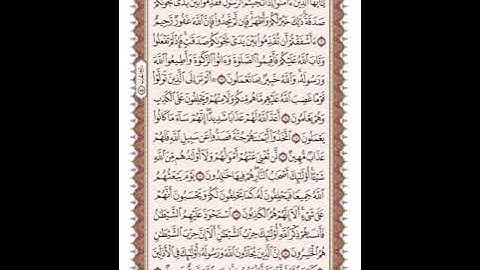 يَٰٓأَيُّهَا ٱلَّذِينَ ءَامَنُوٓا۟ إِذَا نَٰجَيْتُمُ ٱلرَّسُولَ فَقَدِّمُوا۟ بَيْنَ يَدَىْ نَجْوَىٰكُمْ
صَدَقَةً ۚ ذَٰلِكَ خَيْرٌ لَّكُمْ وَأَطْهَرُ ۚ فَإِن لَّمْ تَجِدُوا۟ فَإِنَّ ٱللَّهَ غَفُورٌ رَّحِيمٌ
١٢ ءَأَشْفَقْتُمْ أَن تُقَدِّمُوا۟ بَيْنَ يَدَىْ نَجْوَىٰكُمْ صَدَقَٰتٍ ۚ فَإِذْ لَمْ تَفْعَلُوا۟
وَتَابَ ٱللَّهُ عَلَيْكُمْ فَأَقِيمُوا۟ ٱلصَّلَوٰةَ وَءَاتُوا۟ ٱلزَّكَوٰةَ وَأَطِيعُوا۟ ٱللَّهَ
وَرَسُولَهُۥ ۚ وَٱللَّهُ خَبِيرٌۢ بِمَا تَعْمَلُونَ ١٣ أَلَمْ تَرَ إِلَى ٱلَّذِينَ تَوَلَّوْا۟
قَوْمًا غَضِبَ ٱللَّهُ عَلَيْهِم مَّا هُم مِّنكُمْ وَلَا مِنْهُمْ وَيَحْلِفُونَ عَلَى ٱلْكَذِبِ
وَهُمْ يَعْلَمُونَ ١٤ أَعَدَّ ٱللَّهُ لَهُمْ عَذَابًا شَدِيدًا ۖ إِنَّهُمْ سَآءَ مَا كَانُوا۟
يَعْمَلُونَ ١٥ ٱتَّخَذُوٓا۟ أَيْمَٰنَهُمْ جُنَّةً فَصَدُّوا۟ عَن سَبِيلِ ٱللَّهِ فَلَهُمْ
عَذَابٌ مُّهِينٌ ١٦ لَّن تُغْنِىَ عَنْهُمْ أَمْوَٰلُهُمْ وَلَآ أَوْلَٰدُهُم مِّنَ ٱللَّهِ
شَيْـًٔا ۚ أُو۟لَٰٓئِكَ أَصْحَٰبُ ٱلنَّارِ ۖ هُمْ فِيهَا خَٰلِدُونَ ١٧ يَوْمَ يَبْعَثُهُمُ
ٱللَّهُ جَمِيعًا فَيَحْلِفُونَ لَهُۥ كَمَا يَحْلِفُونَ لَكُمْ ۖ وَيَحْسَبُونَ أَنَّهُمْ
عَلَىٰ شَىْءٍ ۚ أَلَآ إِنَّهُمْ هُمُ ٱلْكَٰذِبُونَ ١٨ ٱسْتَحْوَذَ عَلَيْهِمُ ٱلشَّيْطَٰنُ
فَأَنسَىٰهُمْ ذِكْرَ ٱللَّهِ ۚ أُو۟لَٰٓئِكَ حِزْبُ ٱلشَّيْطَٰنِ ۚ أَلَآ إِنَّ حِزْبَ ٱلشَّيْطَٰنِ
هُمُ ٱلْخَٰسِرُونَ ١٩ إِنَّ ٱلَّذِينَ يُحَآدُّونَ ٱللَّهَ وَرَسُولَهُۥٓ أُو۟لَٰٓئِكَ فِى ٱلْأَذَلِّينَ